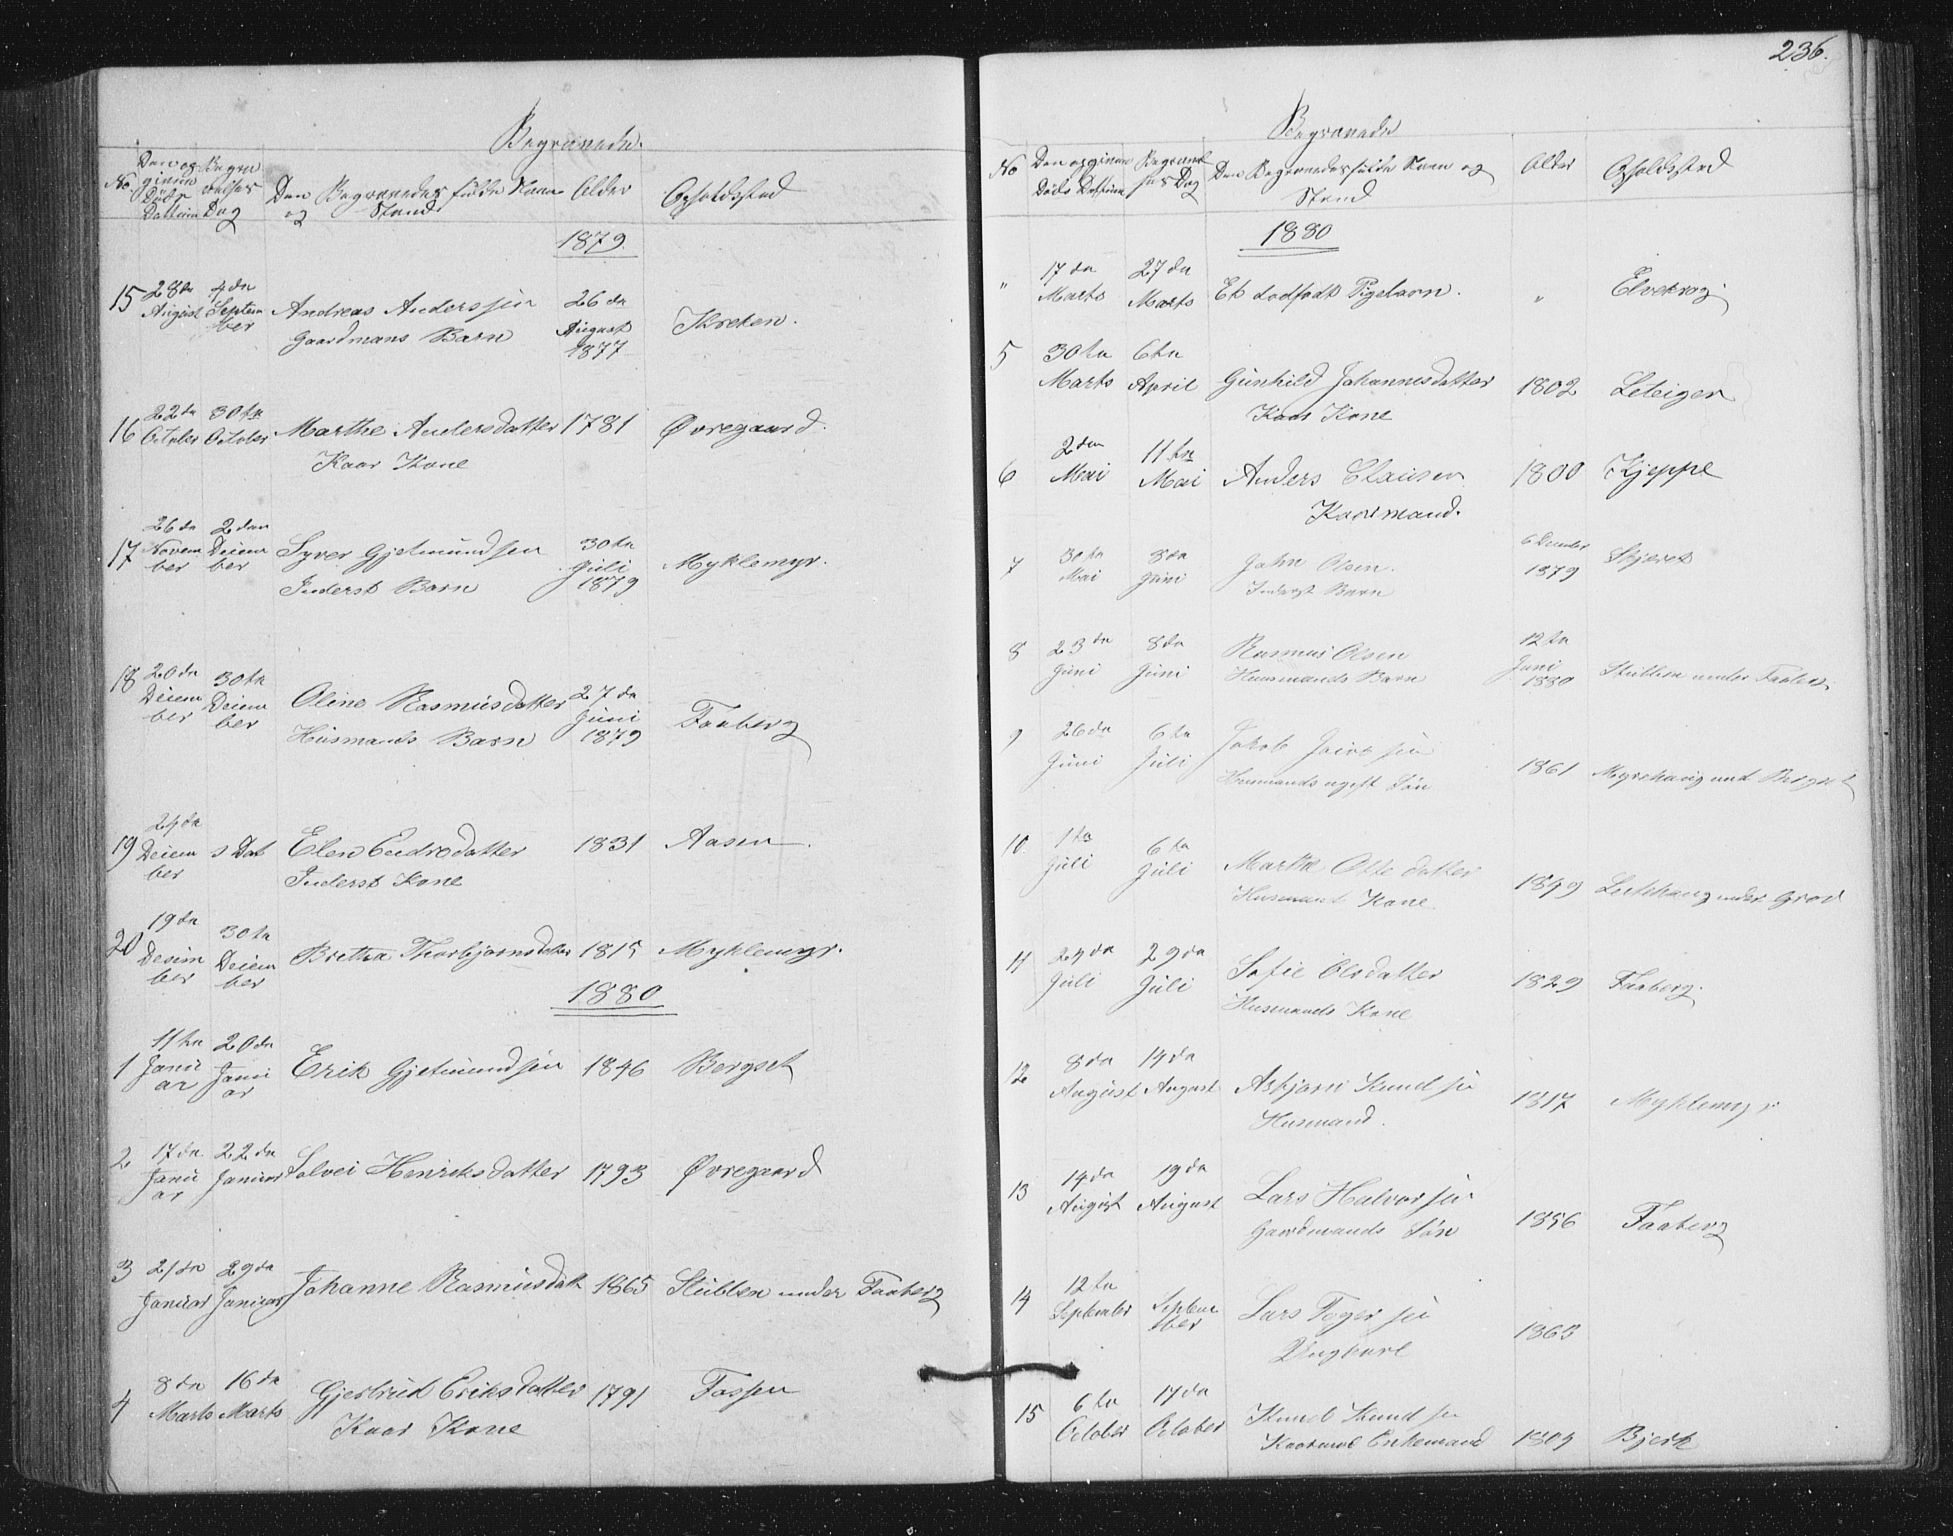 Begravede.
No
Den opgivne Döds Dattum
Begravelses Dag
Den Begravedes fulde Navn og Stand
Alder
Opholdssted
1879.
15 28de August 4de September Andreas Anderssen Gaardmans Barn 26de August 1877 Kreken.
16 22de October 30te October Marthe Andersdatter Kaar Kone 1781 Øvregaard.
17 26de November 2den Deiember Syver Gjetmundsen Inderst Barn 30te Juli 1879 Myklemyr.
18 20de Deiember 30te Deiember Oline Rasmusdatter Husmands Barn 27de Juni 1879 Faaberg
19 24de Deiember s Dat Elen Endrodatter Inderst Kone 1831 Aasen.
20 19de Desimber 30te Deiember Brettha Thorbjornsdatter 1815 Myklemyr.
1880
1 11te Januar 20de Januar Erik Gjetmundsen 1846 Bergset
2 17de Januar 22de Januar Solvei Henriksdatter 1793 Øvregaard
3 21de Januar 29de Januar Johanne Rasmusdatt 1865 Stublen under Faaberg
4 8de Marts 16de Marts Gjertrud Eriksdatter Kaar Kone 1791 Fossen
236.
Begravede
No
Den opgivne Döds Dattum
Begravelses Dag
Den Begravedes fulde Navn og Stand
Alder
Opholdssted
1880
" 17de Marts 27de Marts Et dodfodt Pigebarn. " Elvekrog.
5 30te Marts 6te April Gunhild Johannesdatter Kaar Kone 1802 Leteigen
6 2den Mai 11te Mai Anders Clausen Kaarmand. 1800 Kjeppe
7 30te Mai 8de Juni John Olsen. Inderst Barn 1879
8 23de Juni 8de Juni Rasmus Olsen Husmands Barn 12te Juni 1880 Stublen under Faaberg
9 26de Juni 6te Juli Jakob 1861
10. 1te Juli 6te Juli Martha Ottedatter Husmand Kone. 1849
11 24de Juli 29de Juli Sofie Olsdatter Husmands Kone 1829 Faaberg.
12 8de August 14de August Asbjørn Knudsen Husmand. 1817 Myklemyr
13 14de August 19de August Lars Halvorsen Gaardmands Søn 1856 Faaberg
14 12te September September Lars Ungkarl 1863
15 6te October 17de October Knud Knudsen Enkemand 1804 Bjerk